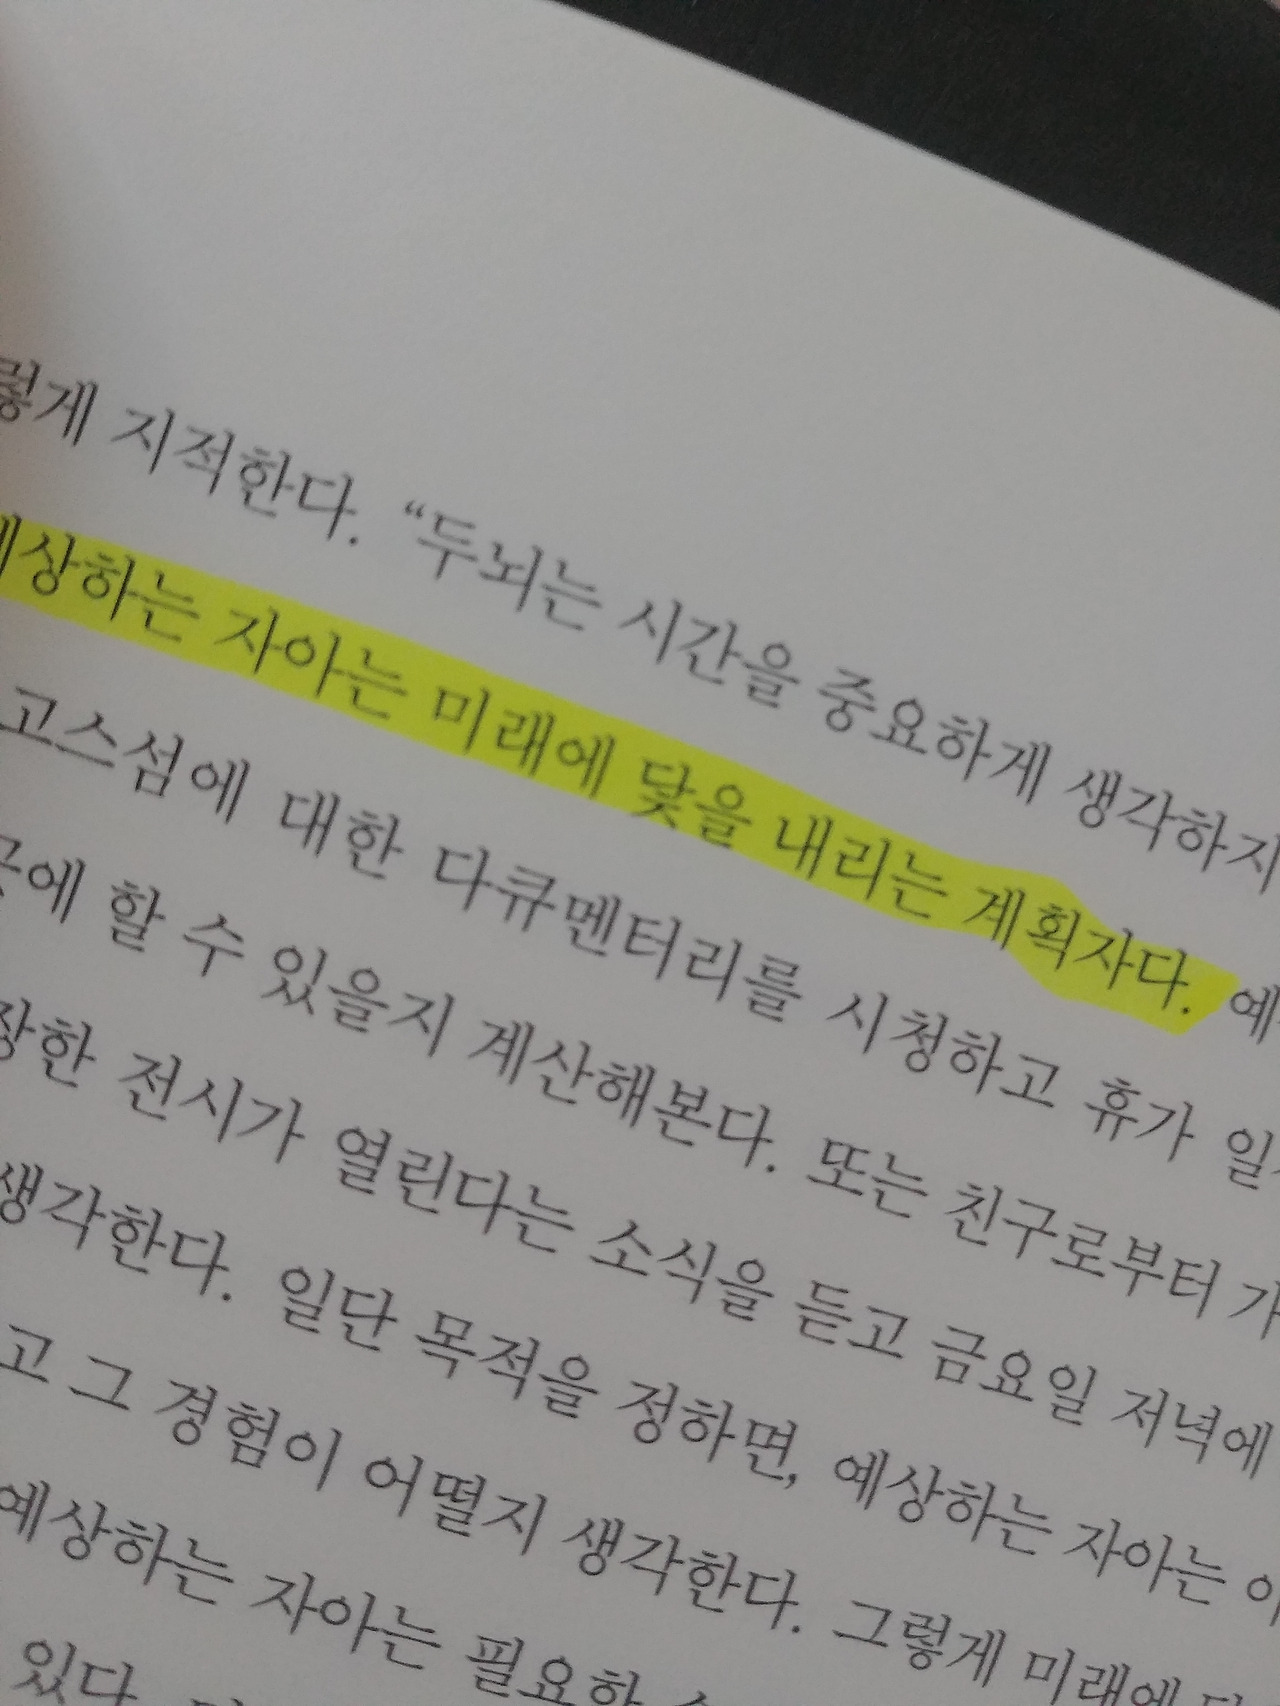 렇게 지적한다. “두뇌는 시간을 중요하게 생각하지
예상하는 자아는 미래에 닻을 내리는 계획자다. 예
고스섬에 대한 다큐멘터리를 시청하고 휴가 일
곳에 할 수 있을지 계산해본다. 또는 친구로부터 가
장한 전시가 열린다는 소식을 듣고 금요일 저녁에
생각한다. 일단 목적을 정하면, 예상하는 자아는 이
고 그 경험이 어떨지 생각한다. 그렇게 미래에
예상하는 자아는 필요한
있다.